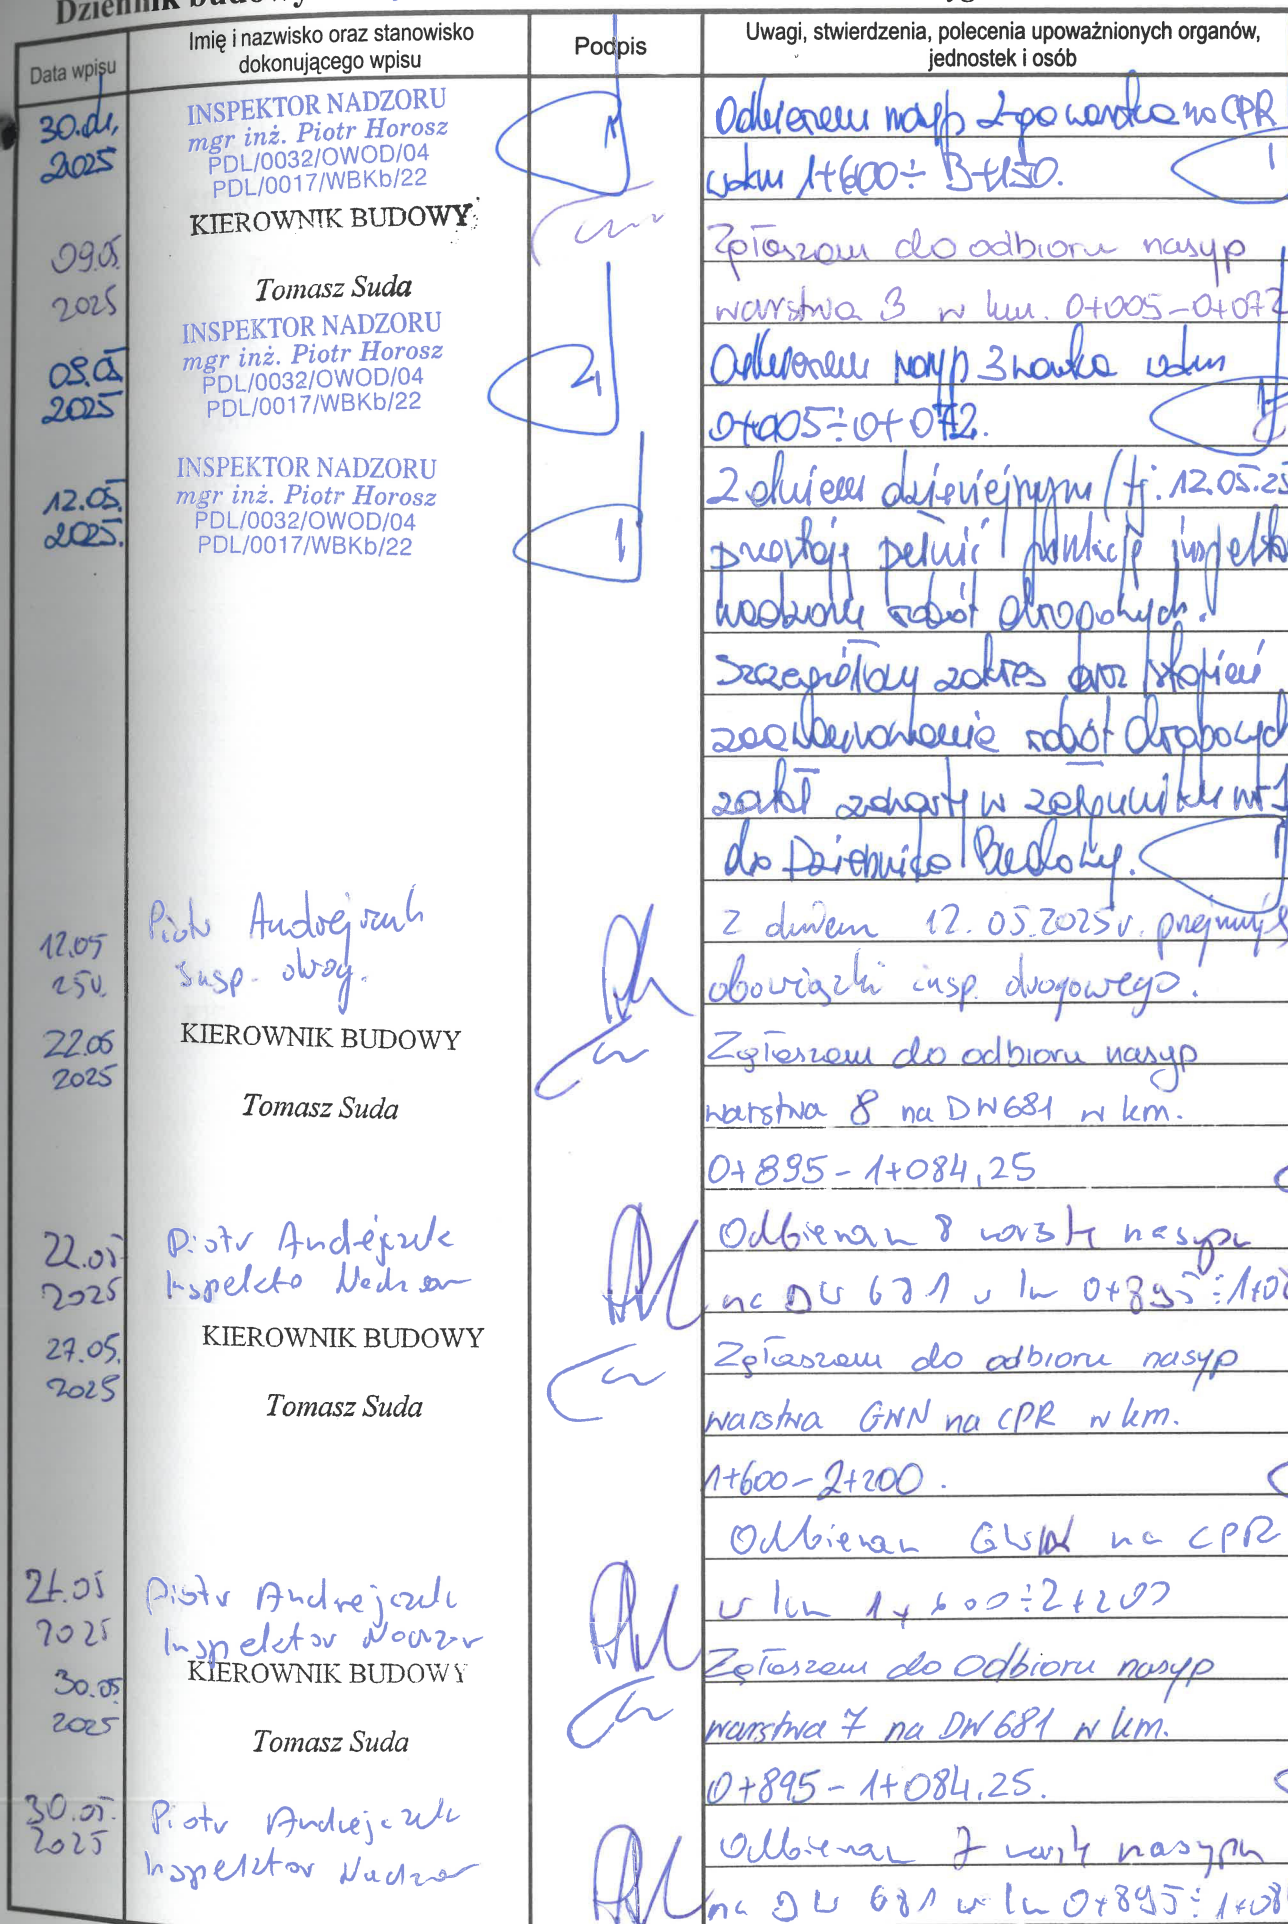 Dziennik budowy
Data wpisu
Imię i nazwisko oraz stanowisko
dokonującego wpisu
Podpis
Uwagi, stwierdzenia, polecenia upoważnionych organów,
jednostek i osób
30.04.
2025
INSPEKTOR NADZORU
mgr inż. Piotr Horosz
PDL/0032/OWOD/04
PDL/0017/WBKb/22
Odbieram nasyp 2-ga warstwa na CPR
w km 1+600÷3+150.
09.05.
2025
KIEROWNIK BUDOWY
Tomasz Suda
Zgłaszam do odbioru nasyp
warstwa 3 w km. 0+005-0+072
09.05
2025
INSPEKTOR NADZORU
mgr inż. Piotr Horosz
PDL/0032/OWOD/04
PDL/0017/WBKb/22
Odbieram nasyp 3 warstwa w km
0+005÷0+072.
12.05.
2025.
INSPEKTOR NADZORU
mgr inż. Piotr Horosz
PDL/0032/OWOD/04
PDL/0017/WBKb/22
Z dniem dzisiejszym (tj. 12.05.25
przestaję pełnić funkcję inspekto
nadzoru robót drogowych.
Szczegółowy zakres oraz stopień
zaawansowania robót drogowych
został zawarty w załączniku nr 1
do Dziennika Budowy.
12.05
25r.
Piotr Andrejczuk
Insp. drog.
Z dniem 12.05.2025r. przejmuję
obowiązki insp. drogowego.
22.05
2025
KIEROWNIK BUDOWY
Tomasz Suda
Zgłaszam do odbioru nasyp
warstwa 8 na DW681 w km.
0+895-1+084,25
22.05
2025
Piotr Andrejczuk
Inspektor Nadzor
Odbieram 8 warstwę nasypu
na DW 681 w km 0+895÷1+08
27.05.
2025
KIEROWNIK BUDOWY
Tomasz Suda
Zgłaszam do odbioru nasyp
warstwa GWN na CPR w km.
1+600-2+200.
27.05
2025
Piotr Andrejczuk
Inspektor Nadzor
Odbieram GWN na CPR
w km 1+600÷2+200
30.05
2025
KIEROWNIK BUDOWY
Tomasz Suda
Zgłaszam do odbioru nasyp
warstwa 7 na DW681 w km.
0+895-1+084,25.
30.05.
2025
Piotr Andrejczuk
Inspektor Nadzor
Odbieram 7 warstwę nasypu
na DW 681 w km 0+895÷1+08